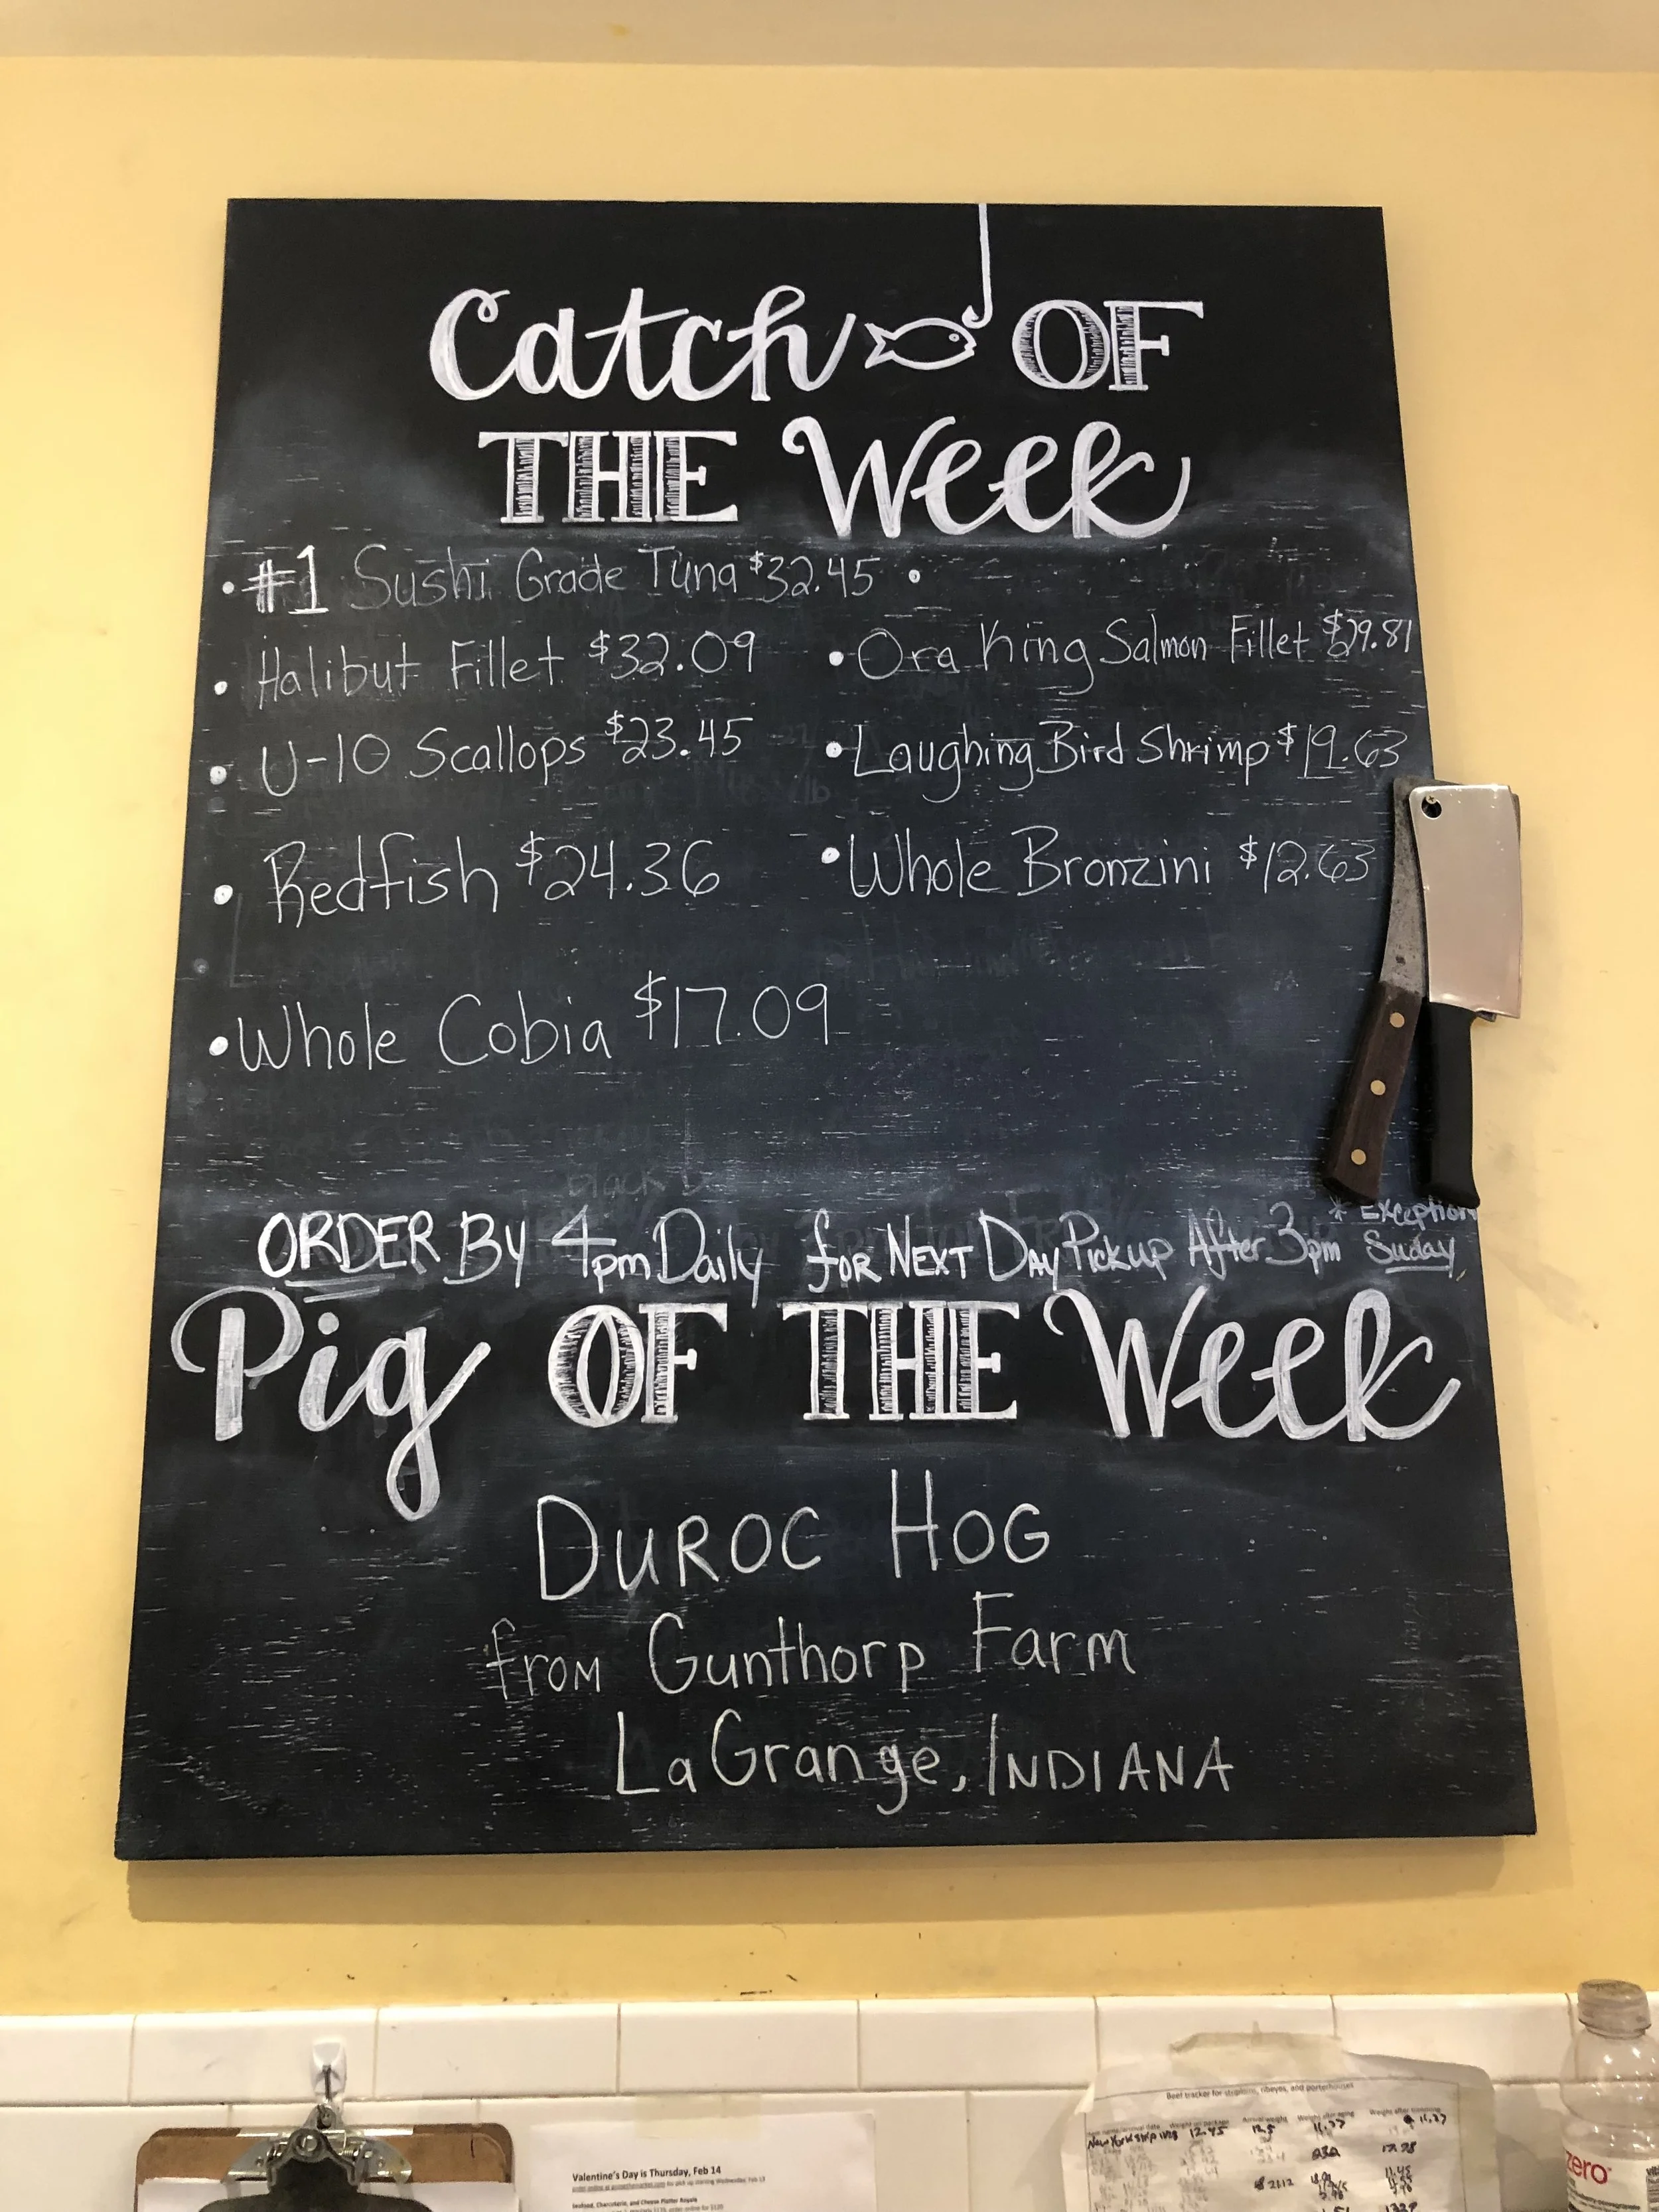 Catch OF
THE Week
• #1 Sushi Grade Tuna $32.45 •
• Halibut Fillet $32.09
• Ora King Salmon Fillet $29.81
• U-10 Scallops $23.45
• Laughing Bird Shrimp $19.63
• Redfish $24.36
• Whole Bronzini $12.63
• Whole Cobia $17.09
ORDER By 4pm Daily for NEXT DAY Pickup After 3pm
* Exception
Suday
Pig OF THE Week
DUROC HOG
from Gunthorp Farm
LaGrange, INDIANA
Valentine's Day is Thursday, Feb 14
Seafood, Charcuterie, and Cheese Platter Royale
Beef tracker for striploins, ribeyes, and porterhouses
New York strip 12.45 12.5 11.77 11.27
zero